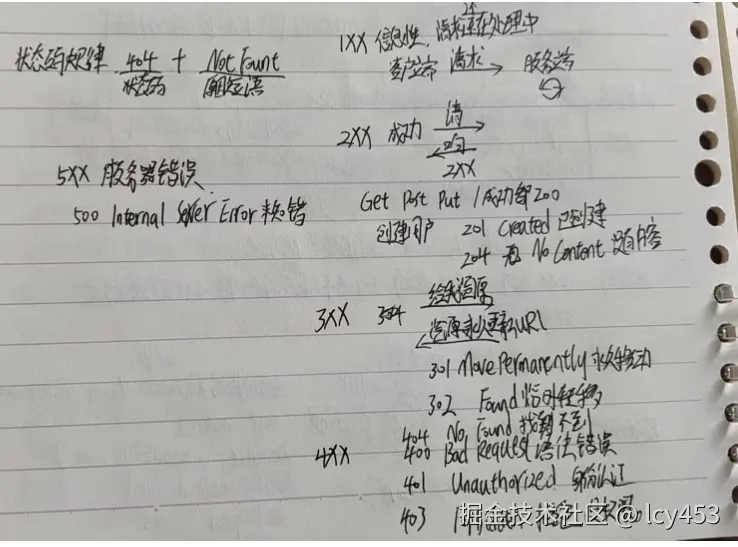 状态码规律 404 + Not Fount
状态码 短语
1XX 信息性，请求还在处理中
请求 → 服务端
2XX 成功 请
2XX
5XX 服务器错误
500 Internal Server Error 未知错
Get Post Put / 成功都200
创建用户 201 Created 已创建
204 No Content 没有内容
3XX 304 给我资源
资源永久更新URL
301 Move Permanently 永久移动
302 Found 临时转移
404 No Found 找不到
4XX 400 Bad Request 语法错误
401 Unauthorized 身份认证
403
掘金技术社区 @ lcy453